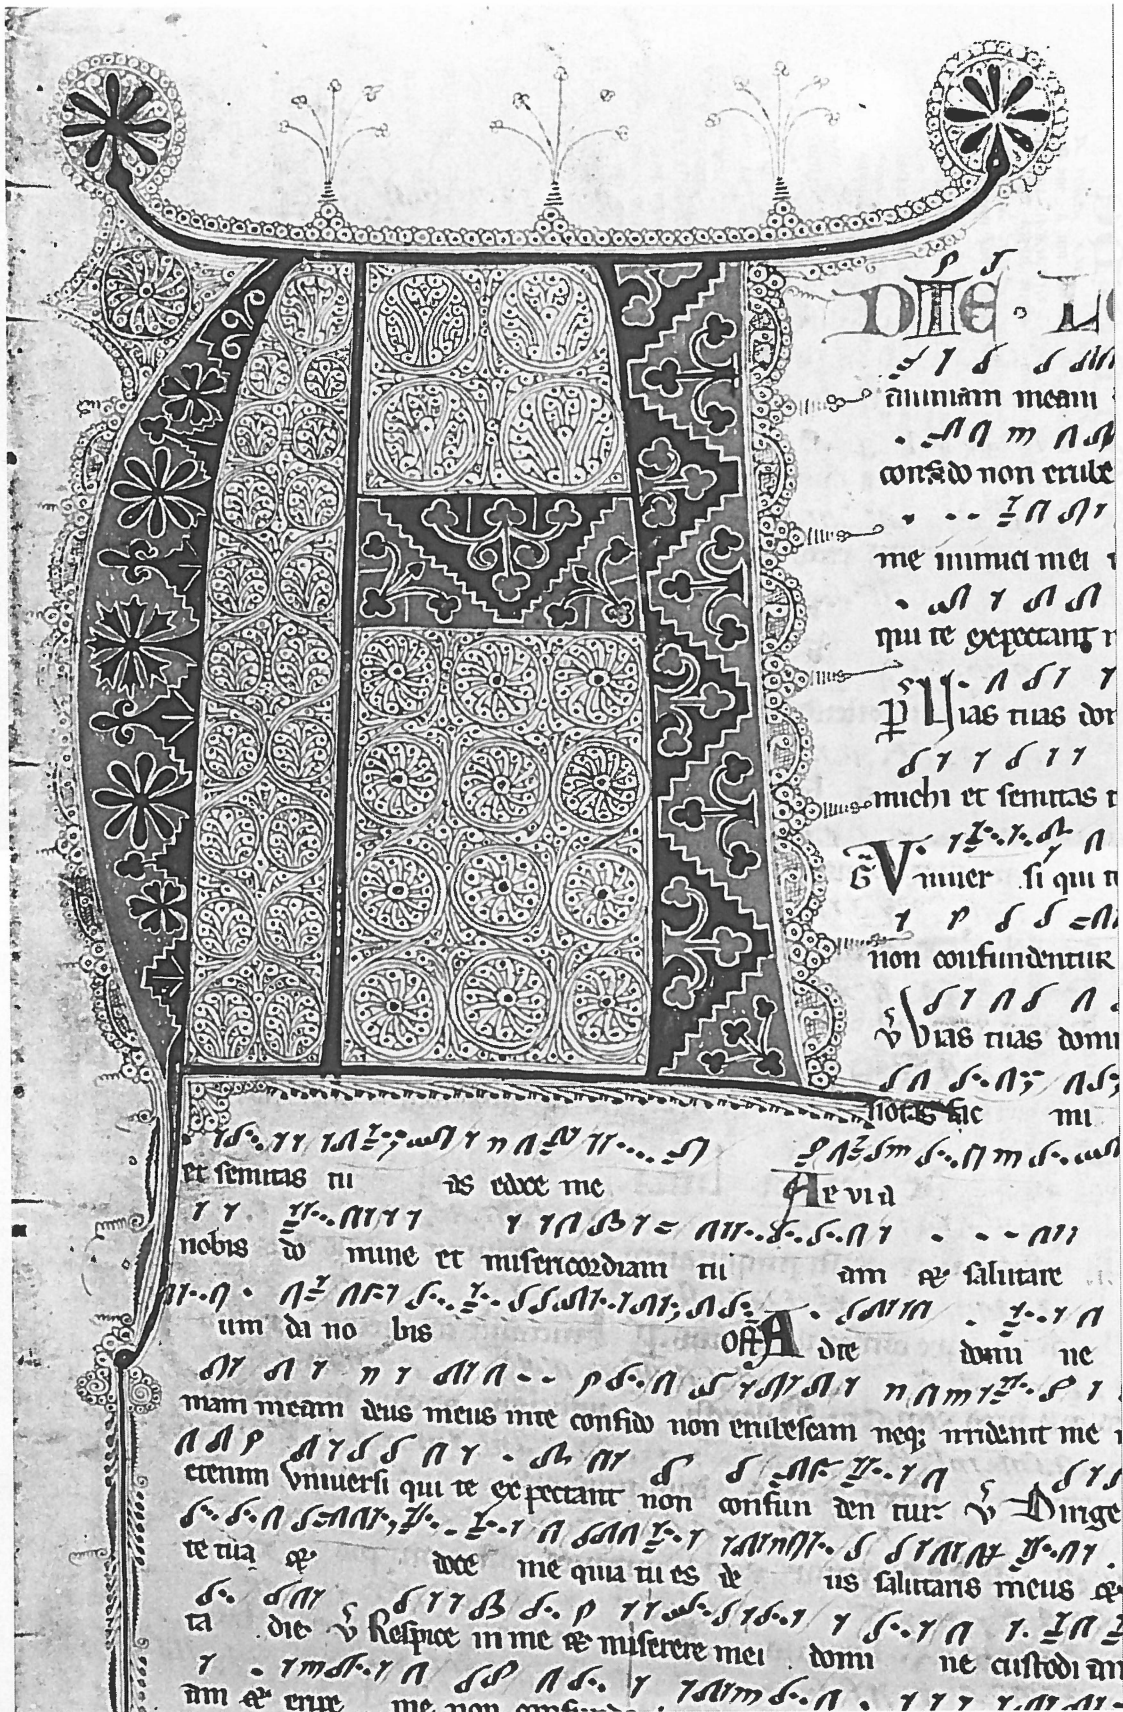 A
DTE · LE
animam meam
confido non erube
me inimici mei
qui te expectant
p̄ s̄ Vias tuas dom
michi et semitas t
G̃ Vniuer si qui te
non confundentur
v̄ s̄ Vias tuas domi
notas fac mi
et semitas tu as edoce me Ae via
nobis do mine et misericordiam tu am et salutare
um da no bis off A dte domi ne
mam meam deus meus inte confido non erubescam neq; irrideant me
etenim vniuersi qui te expectant non confun den tur. v̄ s̄ Dirige
te tua et doce me quia tu es de us salutaris meus et
ta die v̄ s̄ Respice in me et miserere mei domi ne custodi an
am et erue me non confunda